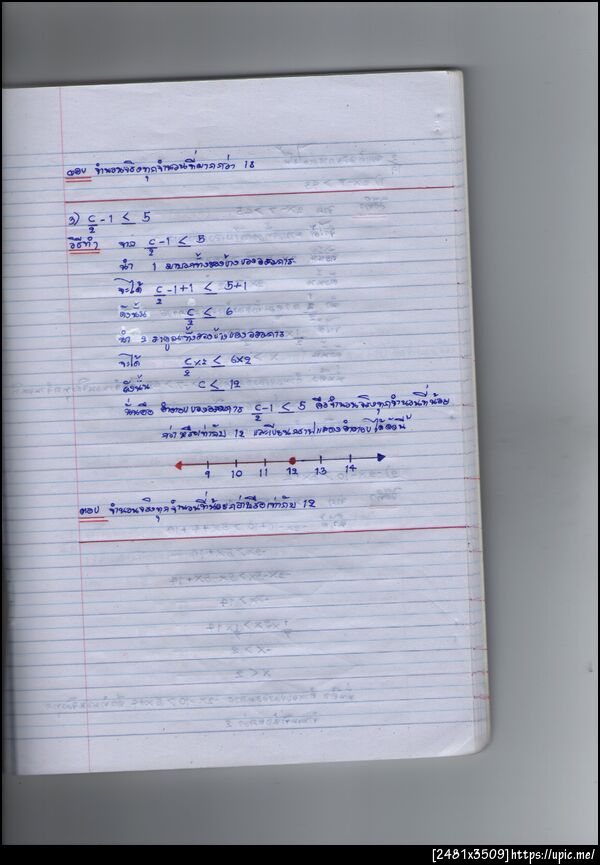 ตอบ จำนวนจริงทุกจำนวนที่มากกว่า 18
3) c/2 - 1 ≤ 5
วิธีทำ จาก c/2 - 1 ≤ 5
นำ 1 มาบวกทั้งสองข้างของอสมการ
จะได้ c/2 - 1 + 1 ≤ 5 + 1
ดังนั้น c/2 ≤ 6
นำ 2 มาคูณทั้งสองข้างของอสมการ
จะได้ c/2 × 2 ≤ 6 × 2
ดังนั้น c ≤ 12
นั่นคือ คำตอบของอสมการ c/2 - 1 ≤ 5 คือจำนวนจริงทุกจำนวนที่น้อย
กว่าหรือเท่ากับ 12 และเขียนกราฟแสดงคำตอบได้ดังนี้
9 10 11 12 13 14
ตอบ จำนวนจริงทุกจำนวนที่น้อยกว่าหรือเท่ากับ 12
[2481x3509]https://upic.me/